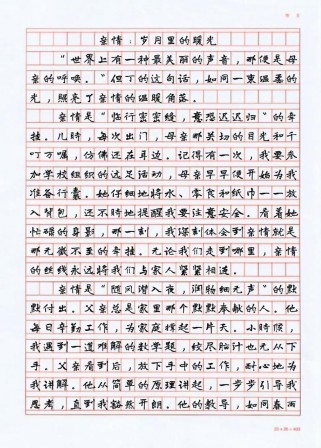 亲情:岁月里的暖光
“世界上有一种最美丽的声音,那便是母
亲的呼唤。”但丁的这句话,如同一束温柔的
光,照亮了亲情的温暖角落。
亲情是“临行密密缝,意恐迟迟归”的牵
挂。儿时,每次出门,母亲那关切的目光和千
叮万嘱,仿佛还在耳边。记得有一次,我要参
加学校组织的远足活动,母亲早早便开始为我
准备行囊。她仔细地将水、零食和纸巾一一放
入背包,还不时地提醒我要注意安全。看着她
忙碌的身影,那一刻,我深刻体会到亲情就是
那无微不至的牵挂。无论我们走到哪里,亲情
的丝线永远将我们与家人紧紧相连。
亲情是“随风潜入夜,润物细无声”的默
默付出。父亲总是家里那个默默奉献的人。他
每日辛勤工作,为家庭撑起一片天。小时候,
我遇到一道难解的数学题,绞尽脑汁也无从下
手。父亲看到后,放下手中的工作,耐心地为
我讲解。他从简单的原理讲起,一步步引导我
思考,直到我豁然开朗。他的教导,如同春雨